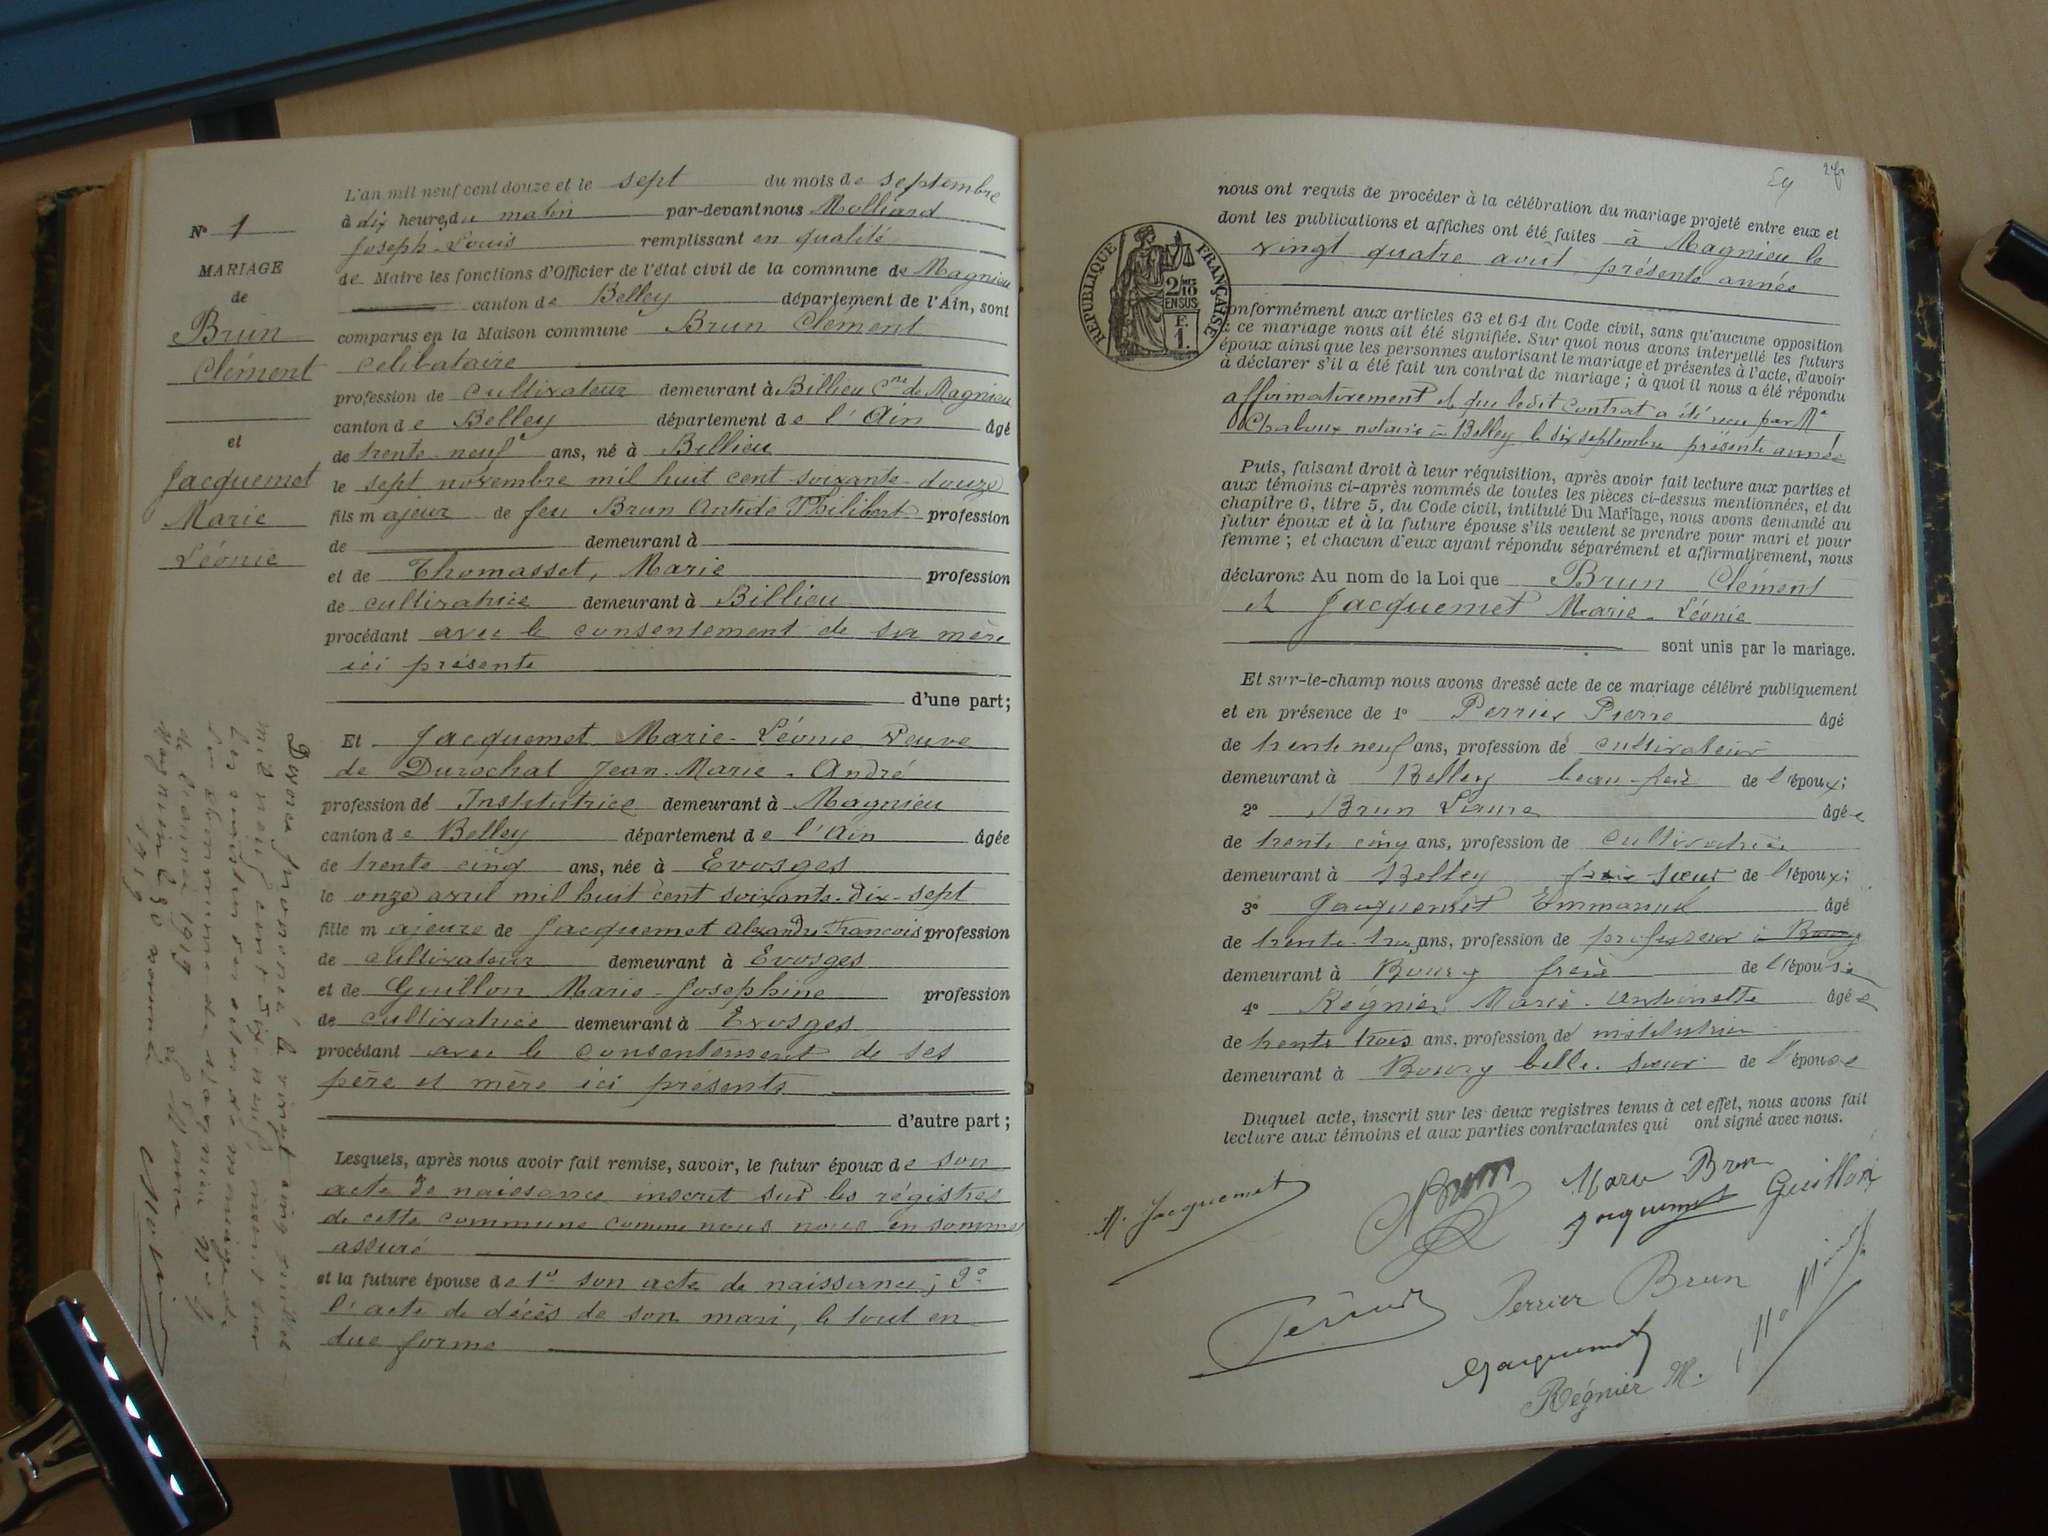 N° 1
MARIAGE
de
Brun
Clément
et
Jacquemet
Marie
Léonie
L'an mil neuf cent douze et le sept du mois de septembre
à dix heures du matin par-devant nous Molliard
Joseph-Louis remplissant en qualité
de Maire les fonctions d'Officier de l'état civil de la commune de Magnieu
canton de Belley département de l'Ain, sont
comparus en la Maison commune Brun Clément
celibataire
profession de cultivateur demeurant à Billieu Cne de Magnieu
canton de Belley département de l'Ain âgé
de trente-neuf ans, né à Billieu
le sept novembre mil huit cent soixante-douze
fils majeur de feu Brun Antide Philibert profession
de demeurant à
et de Thomasset, Marie profession
de cultivatrice demeurant à Billieu
procédant avec le consentement de sa mère
ici présente
d'une part;
Et Jacquemet Marie-Léonie Veuve
de Durochat Jean-Marie-André
profession de Institutrice demeurant à Magnieu
canton de Belley département de l'Ain âgée
de trente cinq ans, née à Evosges
le onze avril mil huit cent soixante-dix-sept
fille majeure de Jacquemet Alexandre François profession
de cultivateur demeurant à Evosges
et de Guillon Marie-Josephine profession
de cultivatrice demeurant à Evosges
procédant avec le consentement de ses
père et mère ici présents
d'autre part;
Lesquels, après nous avoir fait remise, savoir, le futur époux de son
acte de naissance inscrit sur les régistres
de cette commune comme nous nous en sommes
assuré
et la future épouse de 1° son acte de naissance; 2°
l'acte de décès de son mari, le tout en
due forme
Divorce prononcé le vingt cinq juillet
mil neuf cent dix-neuf, inscrit sur
les registres des actes de mariage de
la commune de Magnieu
1919
Magnieu le 30
1919
2f
nous ont requis de procéder à la célébration du mariage projeté entre eux et
dont les publications et affiches ont été faites à Magnieu le
vingt quatre août présente année
RÉPUBLIQUE FRANÇAISE
2/10
EN SUS
F.
1.
conformément aux articles 63 et 64 du Code civil, sans qu'aucune opposition
à ce mariage nous ait été signifiée. Sur quoi nous avons interpellé les futurs
époux ainsi que les personnes autorisant le mariage et présentes à l'acte, d'avoir
à déclarer s'il a été fait un contrat de mariage; à quoi il nous a été répondu
affirmativement et que ledit contrat a été reçu par Me
Chaboux notaire à Belley le six septembre présente année
Puis, faisant droit à leur réquisition, après avoir fait lecture aux parties et
aux témoins ci-après nommés de toutes les pièces ci-dessus mentionnées, et du
chapitre 6, titre 5, du Code civil, intitulé Du Mariage, nous avons demandé au
futur époux et à la future épouse s'ils veulent se prendre pour mari et pour
femme; et chacun d'eux ayant répondu séparément et affirmativement, nous
déclarons Au nom de la Loi que Brun Clément
et Jacquemet Marie-Léonie
sont unis par le mariage.
Et sur-le-champ nous avons dressé acte de ce mariage célébré publiquement
et en présence de 1° Perrier Pierre âgé
de trente neuf ans, profession de cultivateur
demeurant à Belley beau-frère de l'époux;
2° Brun Laure âgée
de trente cinq ans, profession de cultivatrice
demeurant à Belley soeur de l'époux;
3° Jacquemet Emmanuel âgé
de trente-trois ans, profession de professeur à Bourg
demeurant à Bourg frère de l'épouse
4° Régnier Marie-Antoinette âgée
de trente trois ans, profession de institutrice
demeurant à Bourg belle-soeur de l'épouse
Duquel acte, inscrit sur les deux registres tenus à cet effet, nous avons fait
lecture aux témoins et aux parties contractantes qui ont signé avec nous.
M. Jacquemet
Brun
Marie Brun
Jacquemet Guillon
Perrier Brun
Jacquemet
Régnier M.